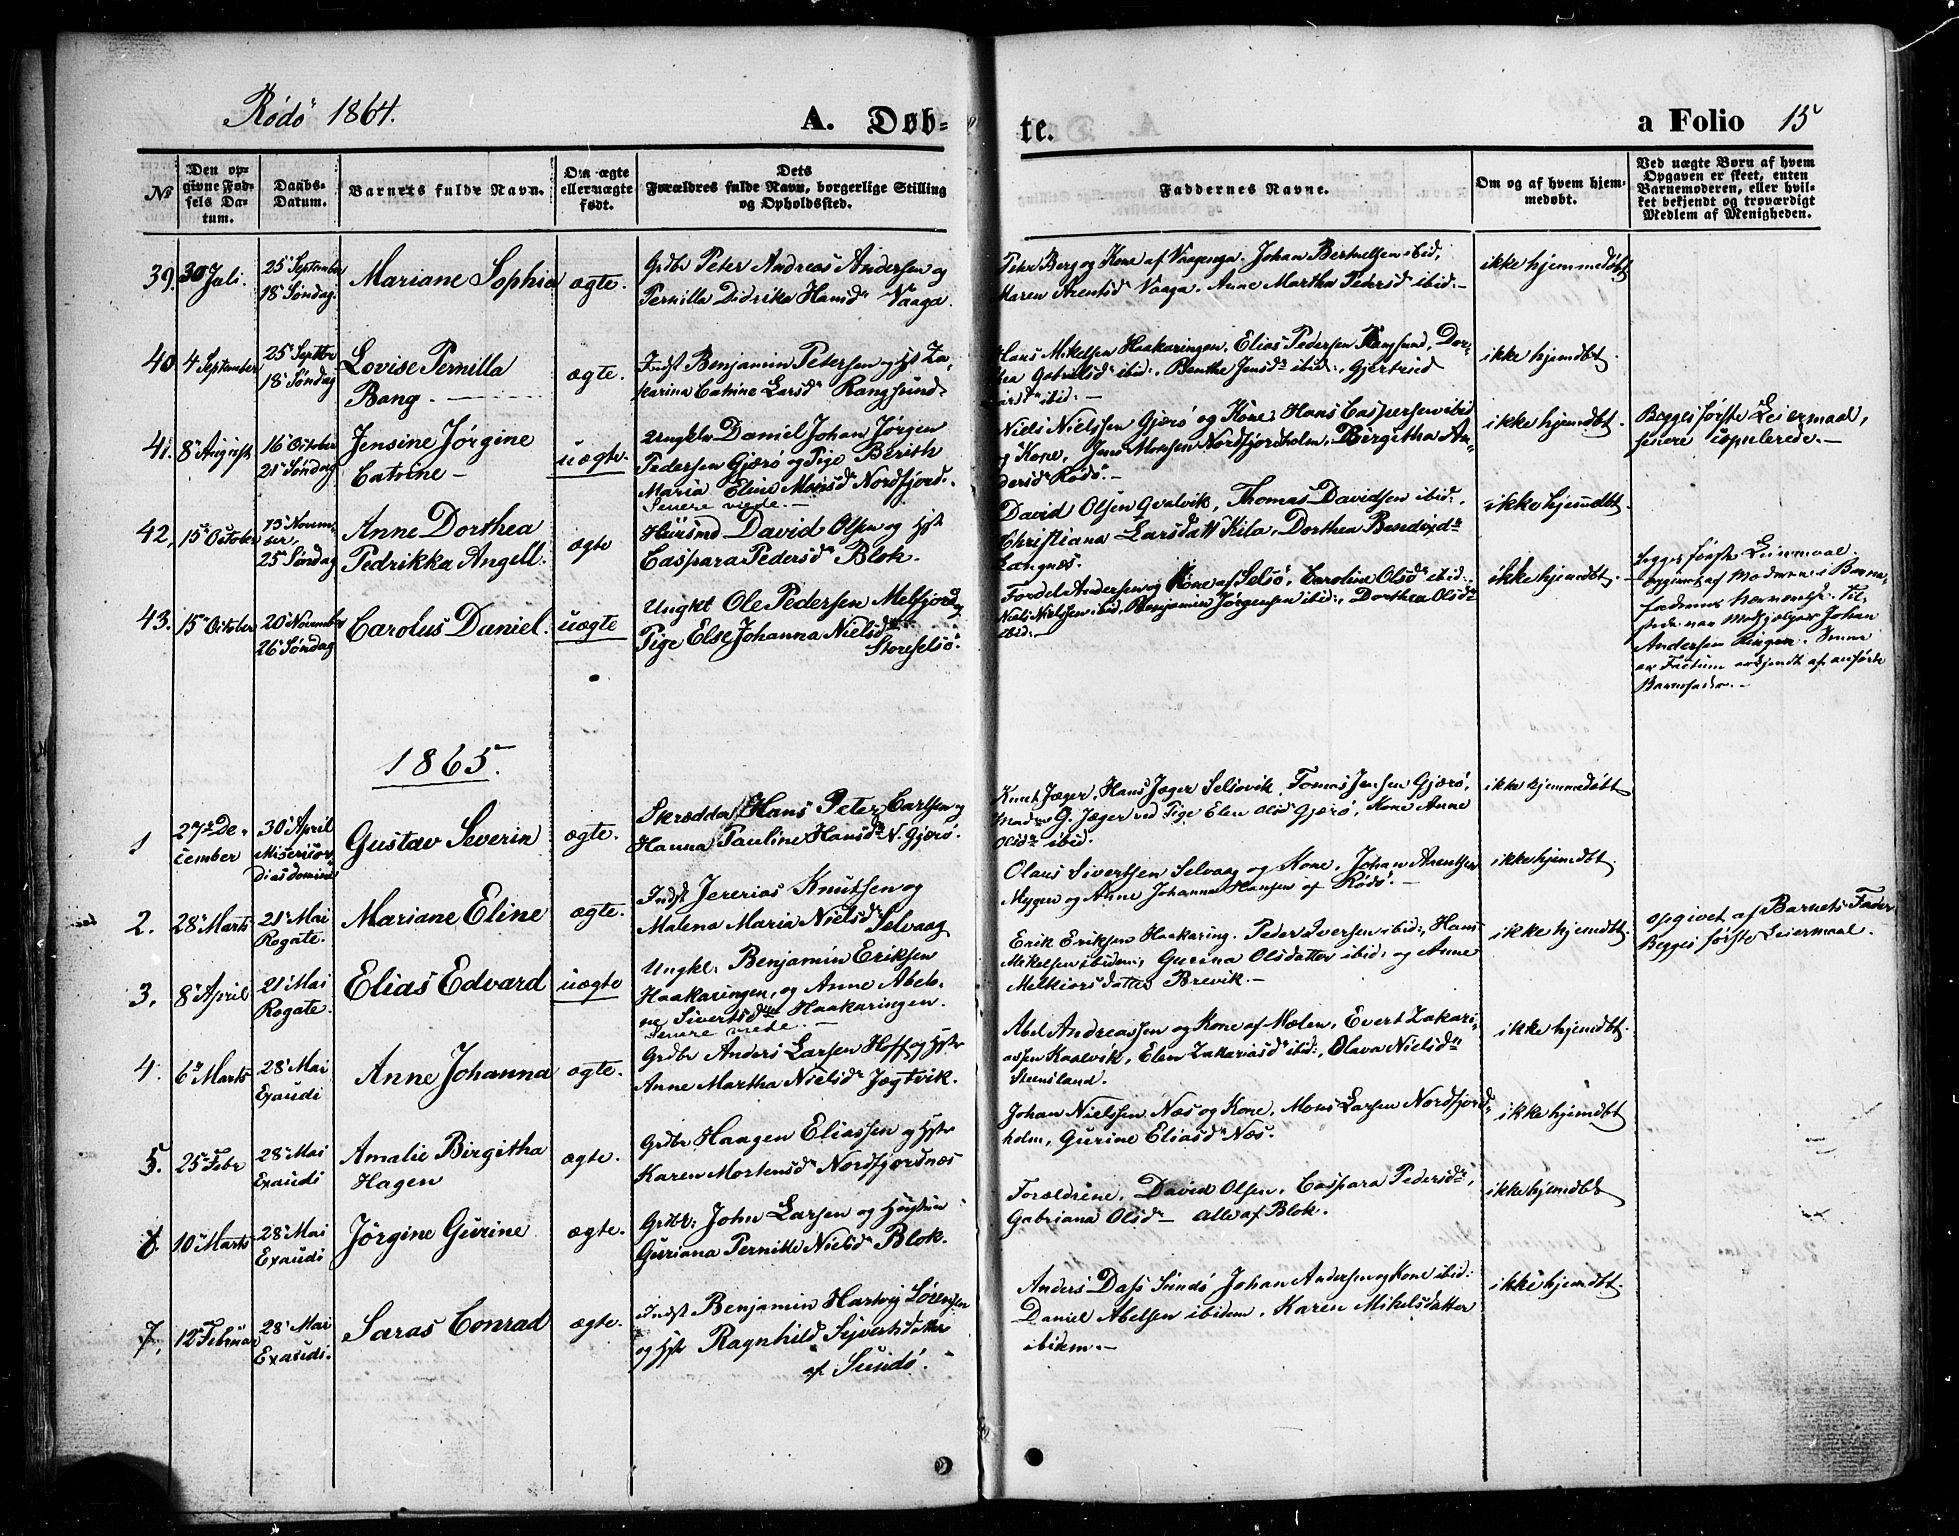 Rödö 1864.
A. Døb-
te.
a Folio 15
№
Den op-
givne Fød-
sels Da-
tum.
Daabs-
Datum.
Barnets fulde Navn.
Om ægte
eller uægte
født.
Dets
Forældres fulde Navn, borgerlige Stilling
og Opholdssted.
Faddernes Navne.
Om og af hvem hjem-
medøbt.
Ved uægte Børn af hvem
Opgaven er skeet, enten
Barnemoderen, eller hvil-
ket bekjendt og troværdigt
Medlem af Menigheden.
39. 30 Juli.
25 September
18 Søndag.
Mariane Sophia
ægte.
Grdbr Peter Andreas Andersen og
Pernilla Didrika Hansd Vaaga.
Peter Berg og Kone af Vaagenga. Johan Berthelsen ibid,
Maren Arentsd Vaaga. Anne Martha Pedersd ibid.-
ikke hjemmedøbt
40 4 September
25 Septbr
18 Søndag
Lovise Pernilla
Bang.
ægte.
Indst Benjamin Petersen og Hst Za-
karina Catrine Larsd Rangsund.
Hans Mikelsen Haakaringen, Elias Pedersen Rangsund, Dor-
thea Gabrielsd ibid., Benthe Jensd ibid., Gjertrud
Larsd ibid.-
ikke hjemdbt
41. 8 August
16 October
21 Søndag
Jensine Jørgine
Catrine -
uægte.
Ungklr Daniel Johan Jørgen
Pedersen Gjærø og Pige Berith
Maria Eline Monsd Nordfjord.
Senere viede.-
Niels Nielssen Gjærö og Kone, Hans Caspersen ibid
og Kone, Jens Monsen Nordfjordholm. Birgitha An-
dersd Rødö.-
ikke hjemdbt
Begges første Leiermaal,
senere copulerede.-
42, 15 October
13 Novem-
ber,
25 Søndag
Anne Dorthea
Pedrikka Angell.
ægte
Huusmd David Olsen og Hst
Caspara Pedersd Blok.
David Olsen Qvalvik, Thomas Davidsen ibid.,
Christiana Larsdatt Kila, Dorthea Bendixd
Langnæs.
ikke hjemdbt
43. 15 October
20 November
26 Søndag
Carolus Daniel.
uægte
Ungkl Ole Pedersen Melfjord og
Pige Else Johanna Nielsd
Storeselsö.
Fordel Andersen og Kone af Selsö, Caroline Olsd ibid.,
Niels Nielssen ibid, Benjamin Jörgensen ibid., Dorthea Olsd
ibid.-
ikke hjemdbt.
Begges første Leiermaal.
opgivet af Moderen i Barne-
faderens Nærværelse. Til-
stede var Medhjælper Johan
Andersen Ringen. Senere
er Factum erkjendt af anførte
Barnefader.-
1865.
1
27 De-
cember
30 April
Misericor-
dias domini
Gustav Severin
ægte.
Skrædder Hans Peter Carlsen og
Hanna Pauline Hansd N. Gjærö.
Knut Jæger, Hans Jæger Selsövik, Tomas Jensen Gjærö,
Madm G. Jæger ved Pige Elen Olsd Gjærö, Kone Anne
Olsd ibid.
ikke hjemmedøbt
2. 28 Marts
21 Mai
Rogate.
Mariane Eline
ægte.
Indst Jererias Knutsen og
Malena Maria Nielsd Selvaag
Olaus Sivertsen Selvaag og Kone, Johan Arentsen
Mygen og Anne Johanna Hansen af Rödö.-
ikke hjemdbt.
3, 8 April
21 Mai
Rogate.
Elias Edvard
uægte
Ungkl. Benjamin Eriksen
Haakaringen, og Anne Abelo-
ne Sivertsd Haakaringen.
Senere viede.-
Erik Eriksen Haakaring. Peder Iversen ibid., Hans
Mikelsen ibidem, Gurina Olsdatter ibid, og Anne
Melkiorsdatter Brevik.-
ikke hjemdbt
opgivet af Barnets Fader
Begges første Leiermaal.
4. 6 Marts
28 Mai
Exaudi
Anne Johanna
ægte.
Grdbr Anders Larsen Hoff og Hstr
Anne Martha Nielsd Jægtvik.
Abel Andreassen og Kone af Mælen, Evert Zakari-
assen Kaalvik, Elen Zakariasd ibid., Olava Nielsd
Steensland.
ikke hjemdbt.
5. 25 Febr
28 Mai
Exaudi
Amalie Birgitha
Hagen
ægte.
Grdbr Haagen Eliassen og Hstr
Karen Mortensd Nordfjordnæs
Johan Nielssen Næs og Kone, Mons Larsen Nordfjord-
holm, Gurine Eliasd Næs.
ikke hjemdbt
6. 10 Marts
28 Mai
Exaudi
Jørgine Gurine
ægte.
Grdbr. John Larsen og Hustru
Guriana Pernille Nielsd Blok.
Forældrene, David Olsen, Caspara Pedersd,
Gabriana Olsd - alle af Blok.
ikke hjemdbt
7, 12 Februar
28 Mai
Exaudi.
Saras Conrad
ægte.
Indst Benjamin Hartvig Sörensen
og Hst Ragnhild Sivertsdatter
af Sundö.
Anders Dass Sundö Johan Andersen og Kone ibid.
Daniel Abelsen ibidem, Karen Mikelsdatter
ibidem.-
ikke hjemdbt